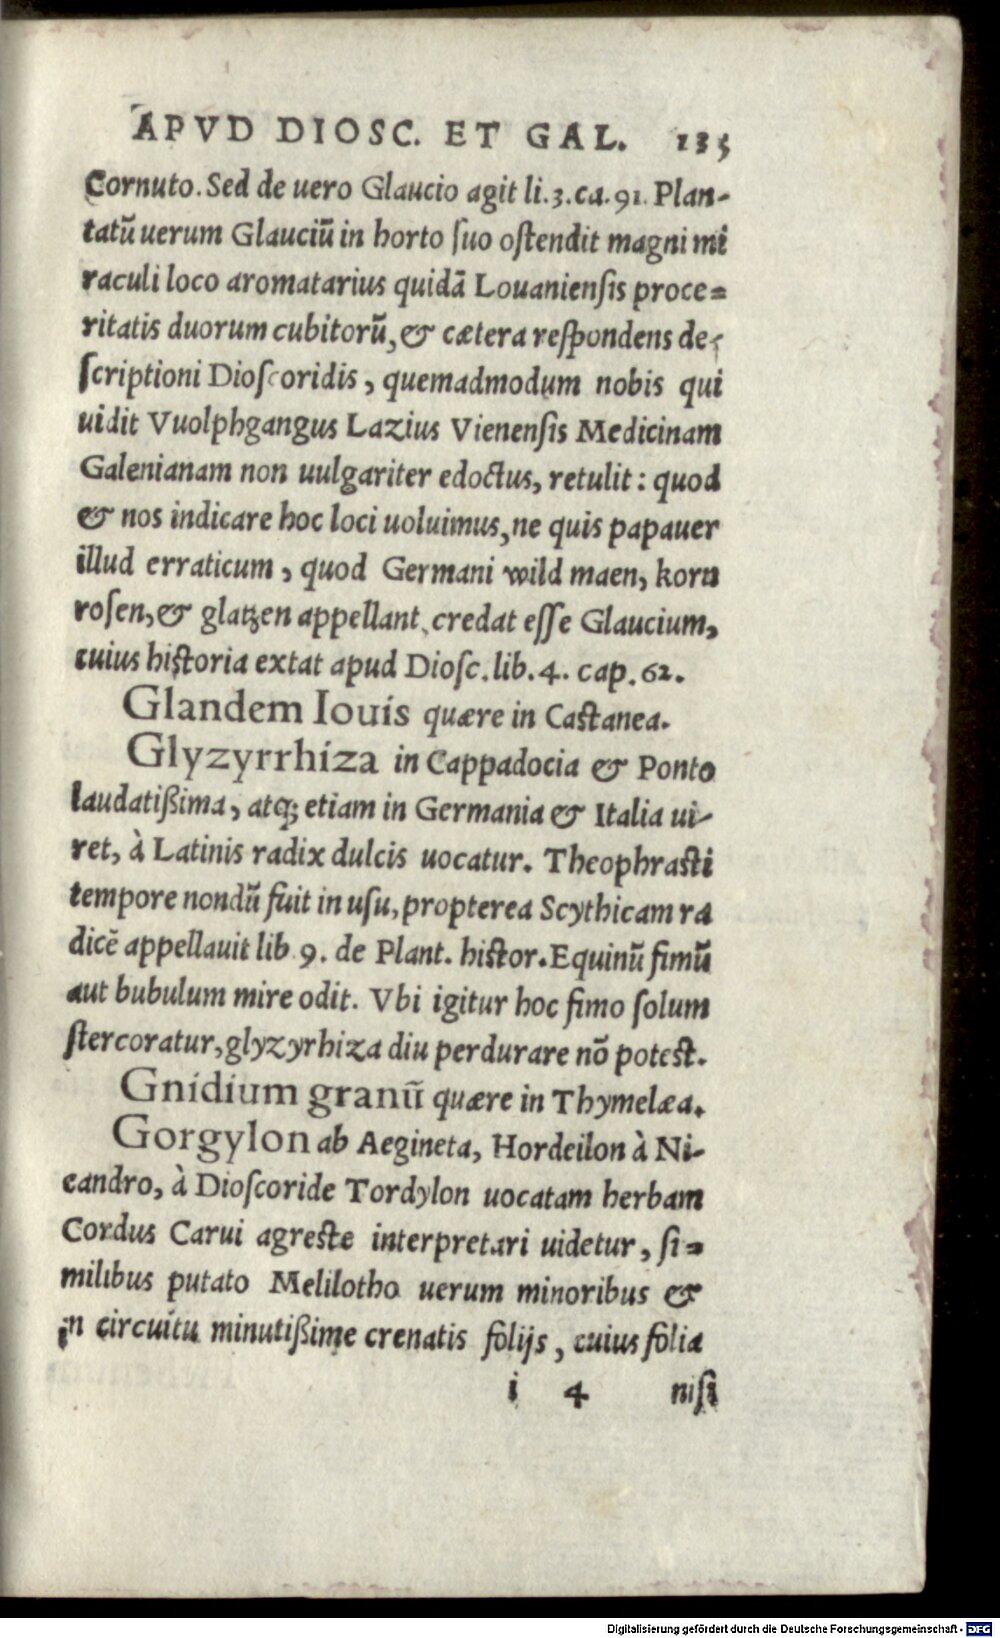 APVD DIOSC. ET GAL. 135
Cornuto. Sed de uero Glaucio agit li.3.ca.91. Plan-
tatũ uerum Glauciũ in horto ſuo oſtendit magni mi
raculi loco aromatarius quidã Louanienſis proce=
ritatis duorum cubitorũ, & cætera reſpondens de-
ſcriptioni Dioſcoridis, quemadmodum nobis qui
uidit Vuolphgangus Lazius Vienenſis Medicinam
Galenianam non uulgariter edoctus, retulit: quod
& nos indicare hoc loci uoluimus, ne quis papauer
illud erraticum, quod Germani wild maen, korn
roſen, & glatzen appellant, credat eſſe Glaucium,
cuius hiſtoria extat apud Dioſc. lib. 4. cap. 62.
Glandem Iouis quære in Caſtanea.
Glyzyrrhiza in Cappadocia & Ponto
laudatißima, atq; etiam in Germania & Italia ui-
ret, à Latinis radix dulcis uocatur. Theophraſti
tempore nondũ fuit in uſu, propterea Scythicam ra
dicẽ appellauit lib 9. de Plant. hiſtor. Equinũ fimũ
aut bubulum mire odit. Vbi igitur hoc fimo ſolum
ſtercoratur, glyzyrhiza diu perdurare nõ poteſt.
Gnidium granũ quære in Thymelæa.
Gorgylon ab Aegineta, Hordeilon à Ni-
candro, à Dioſcoride Tordylon uocatam herbam
Cordus Carui agreſte interpretari uidetur, ſi=
milibus putato Melilotho uerum minoribus &
in circuitu minutißime crenatis folijs, cuius folia
i 4 niſi
Digitalisierung gefördert durch die Deutsche Forschungsgemeinschaft - DFG